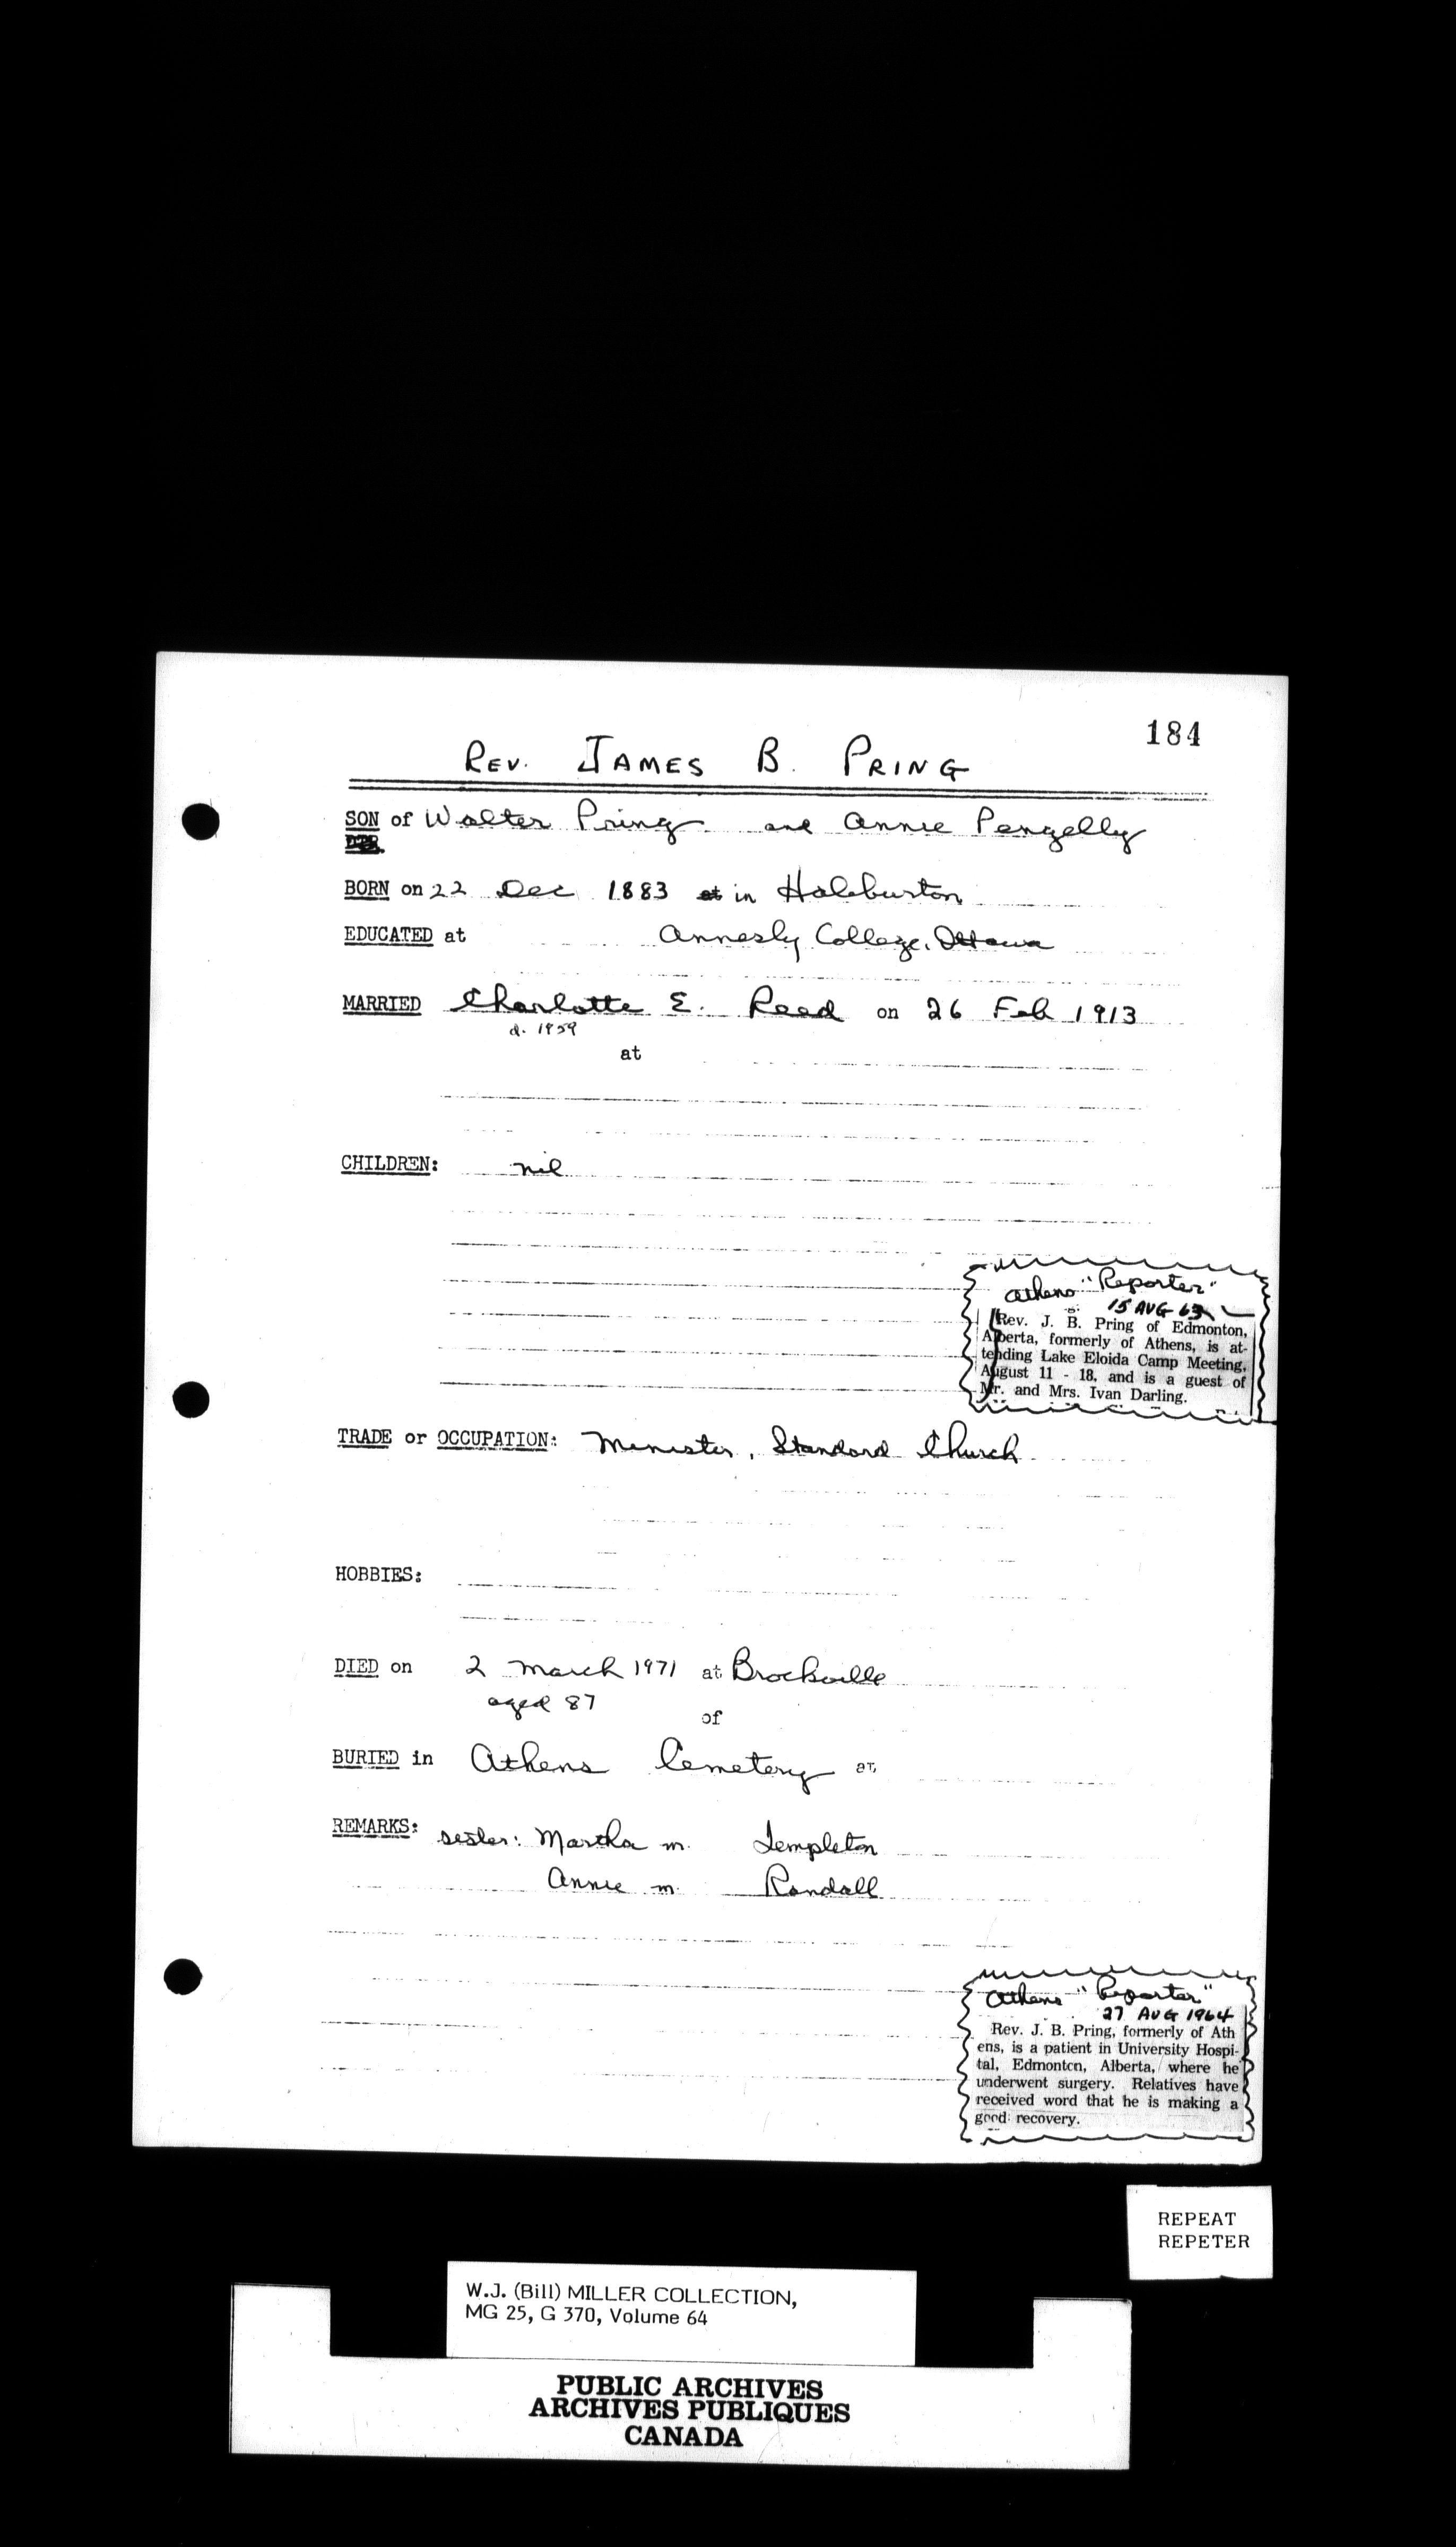 184
REV. JAMES B. PRING
SON of Walter Pring and Annie Pengelly
BORN on 22 Dec 1883 at in Haliburton
EDUCATED at Annesly College, Ottawa
MARRIED Charlotte E. Reed on 26 Feb 1913
d. 1959
at
CHILDREN: nil
Athens "Reporter"
15 AUG 63
Rev. J. B. Pring of Edmonton,
Alberta, formerly of Athens, is at-
tending Lake Eloida Camp Meeting,
August 11 - 18, and is a guest of
Mr. and Mrs. Ivan Darling.
TRADE or OCCUPATION: Minister, Standard Church
HOBBIES:
DIED on 2 March 1971 at Brockville
aged 87
of
BURIED in Athens Cemetery at
REMARKS: sister: Martha m. Templeton
Annie m. Randall
Athens "Reporter"
27 AUG 1964
Rev. J. B. Pring, formerly of Ath
ens, is a patient in University Hospi-
tal, Edmonton, Alberta, where he
underwent surgery. Relatives have
received word that he is making a
good recovery.
REPEAT
REPETER
W.J. (Bill) MILLER COLLECTION,
MG 25, G 370, Volume 64
PUBLIC ARCHIVES
ARCHIVES PUBLIQUES
CANADA